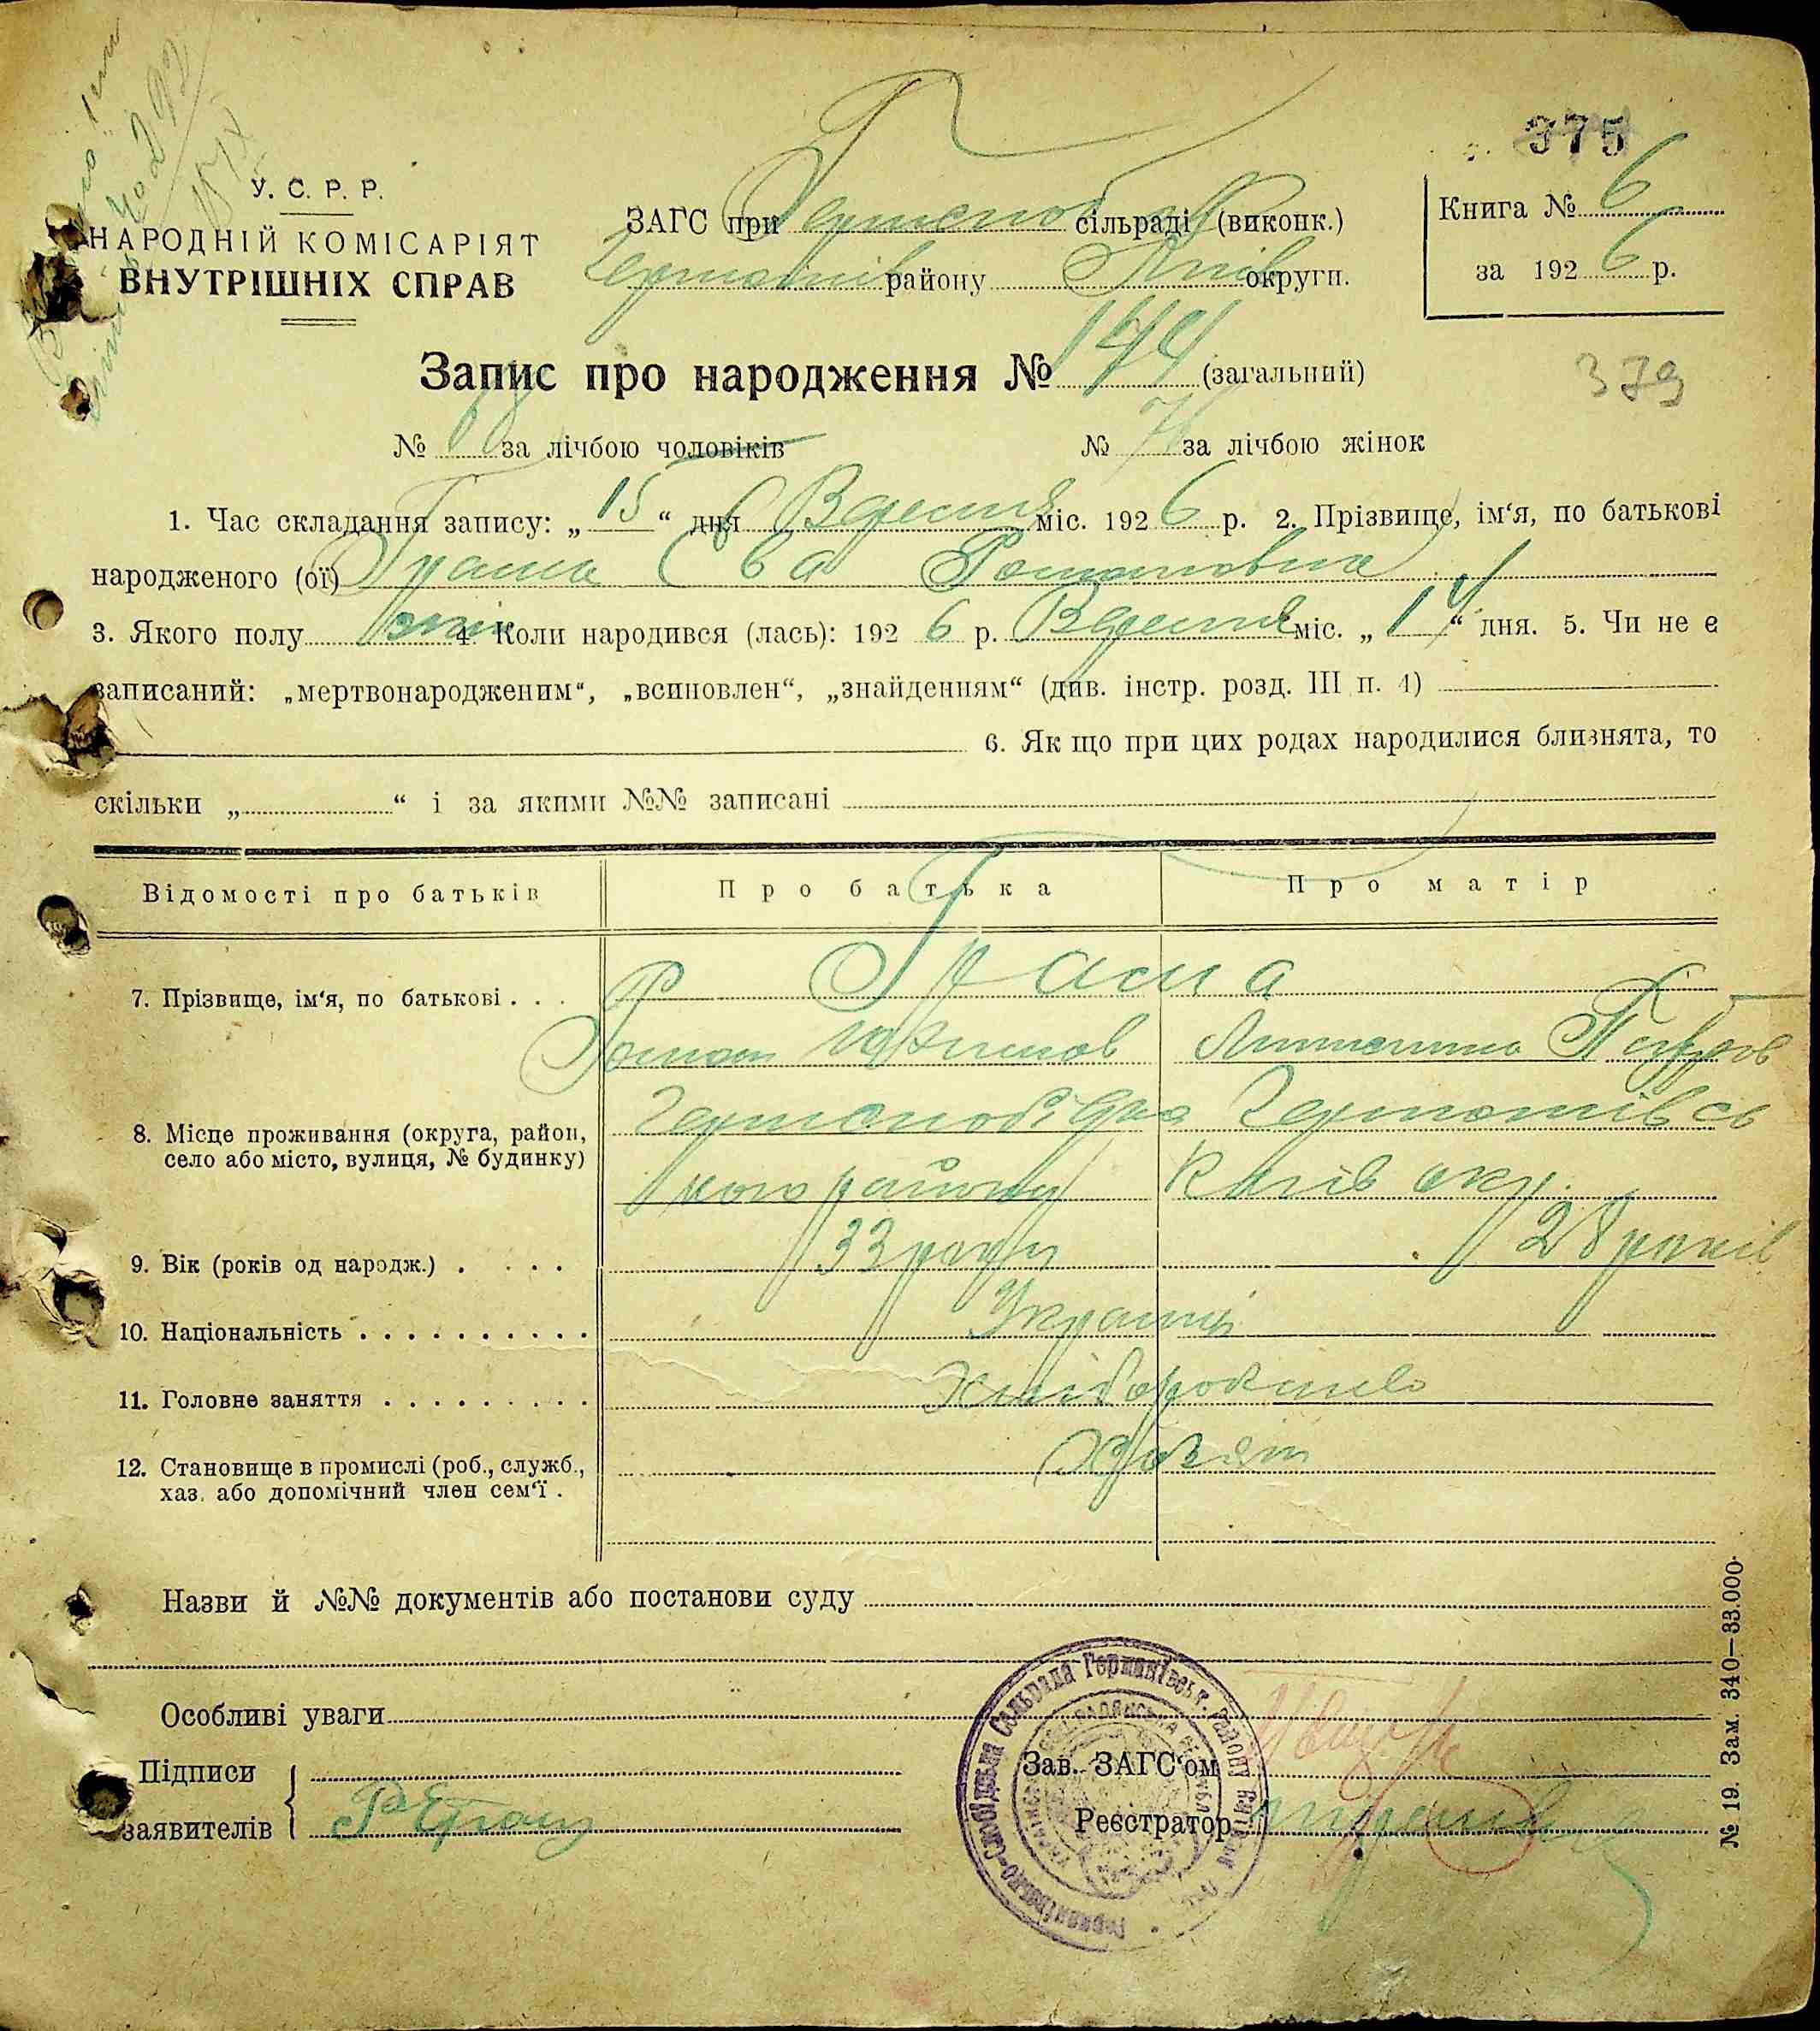 375
У. С. Р. Р.
НАРОДНІЙ КОМІСАРІЯТ
ВНУТРІШНІХ СПРАВ
ЗАГС при сільраді (виконк.)
району Київ округи.
Книга № 6
за 1926 р.
Запис про народження № 144 (загальний)
379
№ 68 за лічбою чоловіків № 76 за лічбою жінок
1. Час складання запису: „15“ дня Вересня міс. 1926 р. 2. Прізвище, ім‘я, по батькові
народженого (ої) Ева Романовна
3. Якого полу жін 4. Коли народився (лась): 1926 р. Вересня міс. „14“ дня. 5. Чи не є
записаний: „мертвонародженим“, „всиновлен“, „знайденням“ (див. інстр. розд. III п. 4)
6. Як що при цих родах народилися близнята, то
скільки „ “ і за якими №№ записані
Відомості про батьків Про батька Про матір
7. Прізвище, ім‘я, по батькові . . .
Роман
8. Місце проживання (округа, район,
село або місто, вулиця, № будинку)
кого району Київ окр.
9. Вік (років од народж.) . . . . 33 роки 28 років
10. Національність . . . . . . . . . . Українці
11. Головне заняття . . . . . . . . . Хліборобство
12. Становище в промислі (роб., служб.,
хаз. або допомічний член сем‘ї .
Назви й №№ документів або постанови суду
Особливі уваги
Підписи
заявителів
Зав. ЗАГС‘ом
Реєстратор
№ 19. Зам. 340—33.000.